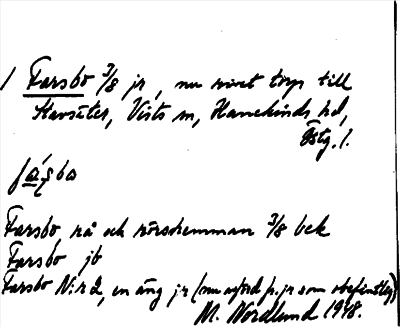 1 Farsbo 3/8 jr, nu rivet torp till
Stavsäter, Vists sn, Hanekinds hd,
Östg. l.
fáşbo
Farsbo, rå och rörshemman 3/8 bek
Farsbo jb
Farsbo N:r 2, en äng jr (nu som obefintlig)
M. Nordlund 1948.